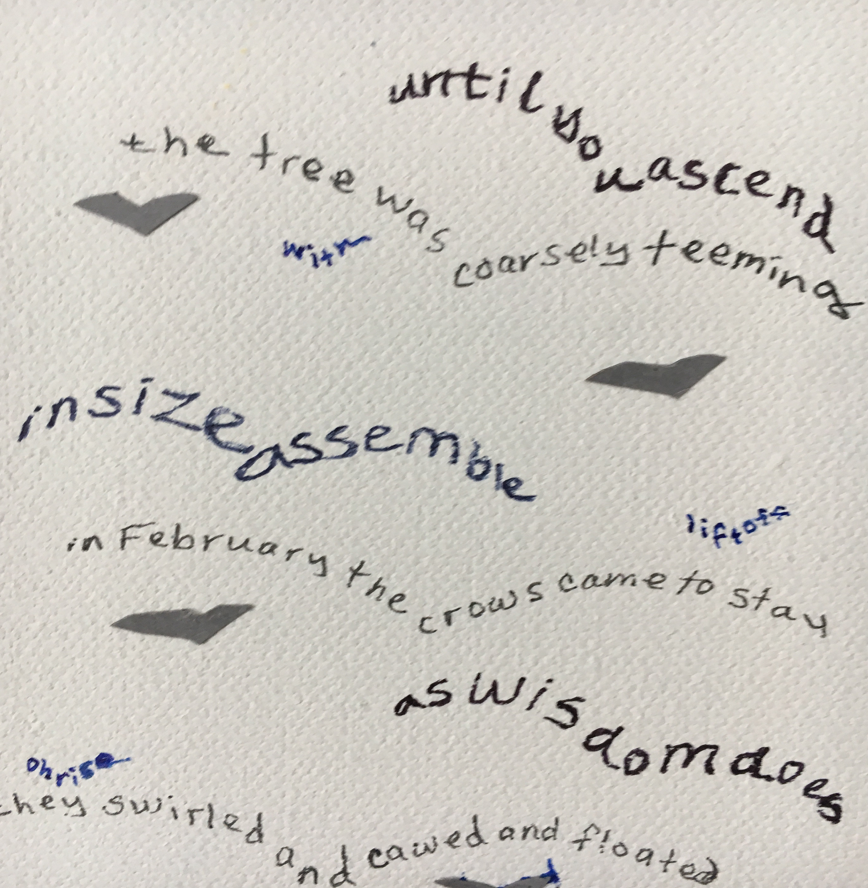 until you ascend
the tree was coarsely teeming
with
in size assemble
lift off
in February the crows came to stay
as wisdom does
oh rise
they swirled and cawed and floated